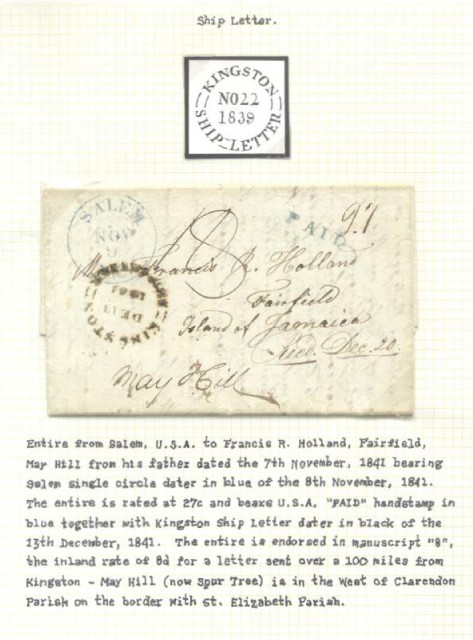 Ship Letter.
KINGSTON
NO22
1839
SHIP-LETTER
SALEM
NOV
PAID
Francis R. Holland
Fairfield
Island of Jamaica
Recd. Dec. 20.
KINGSTON
DE13
1841
8
May Hill
Entire from Salem, U.S.A. to Francis R. Holland, Fairfield,
May Hill from his father dated the 7th November, 1841 bearing
Salem single circle dater in blue of the 8th November, 1841.
The entire is rated at 27c and bears U.S.A. "PAID" handstamp in
blue together with Kingston Ship Letter dater in black of the
13th December, 1841. The entire is endorsed in manuscript "8",
the inland rate of 8d for a letter sent over a 100 miles from
Kingston - May Hill (now Spur Tree) is in the West of Clarendon
Parish on the border with St. Elizabeth Parish.